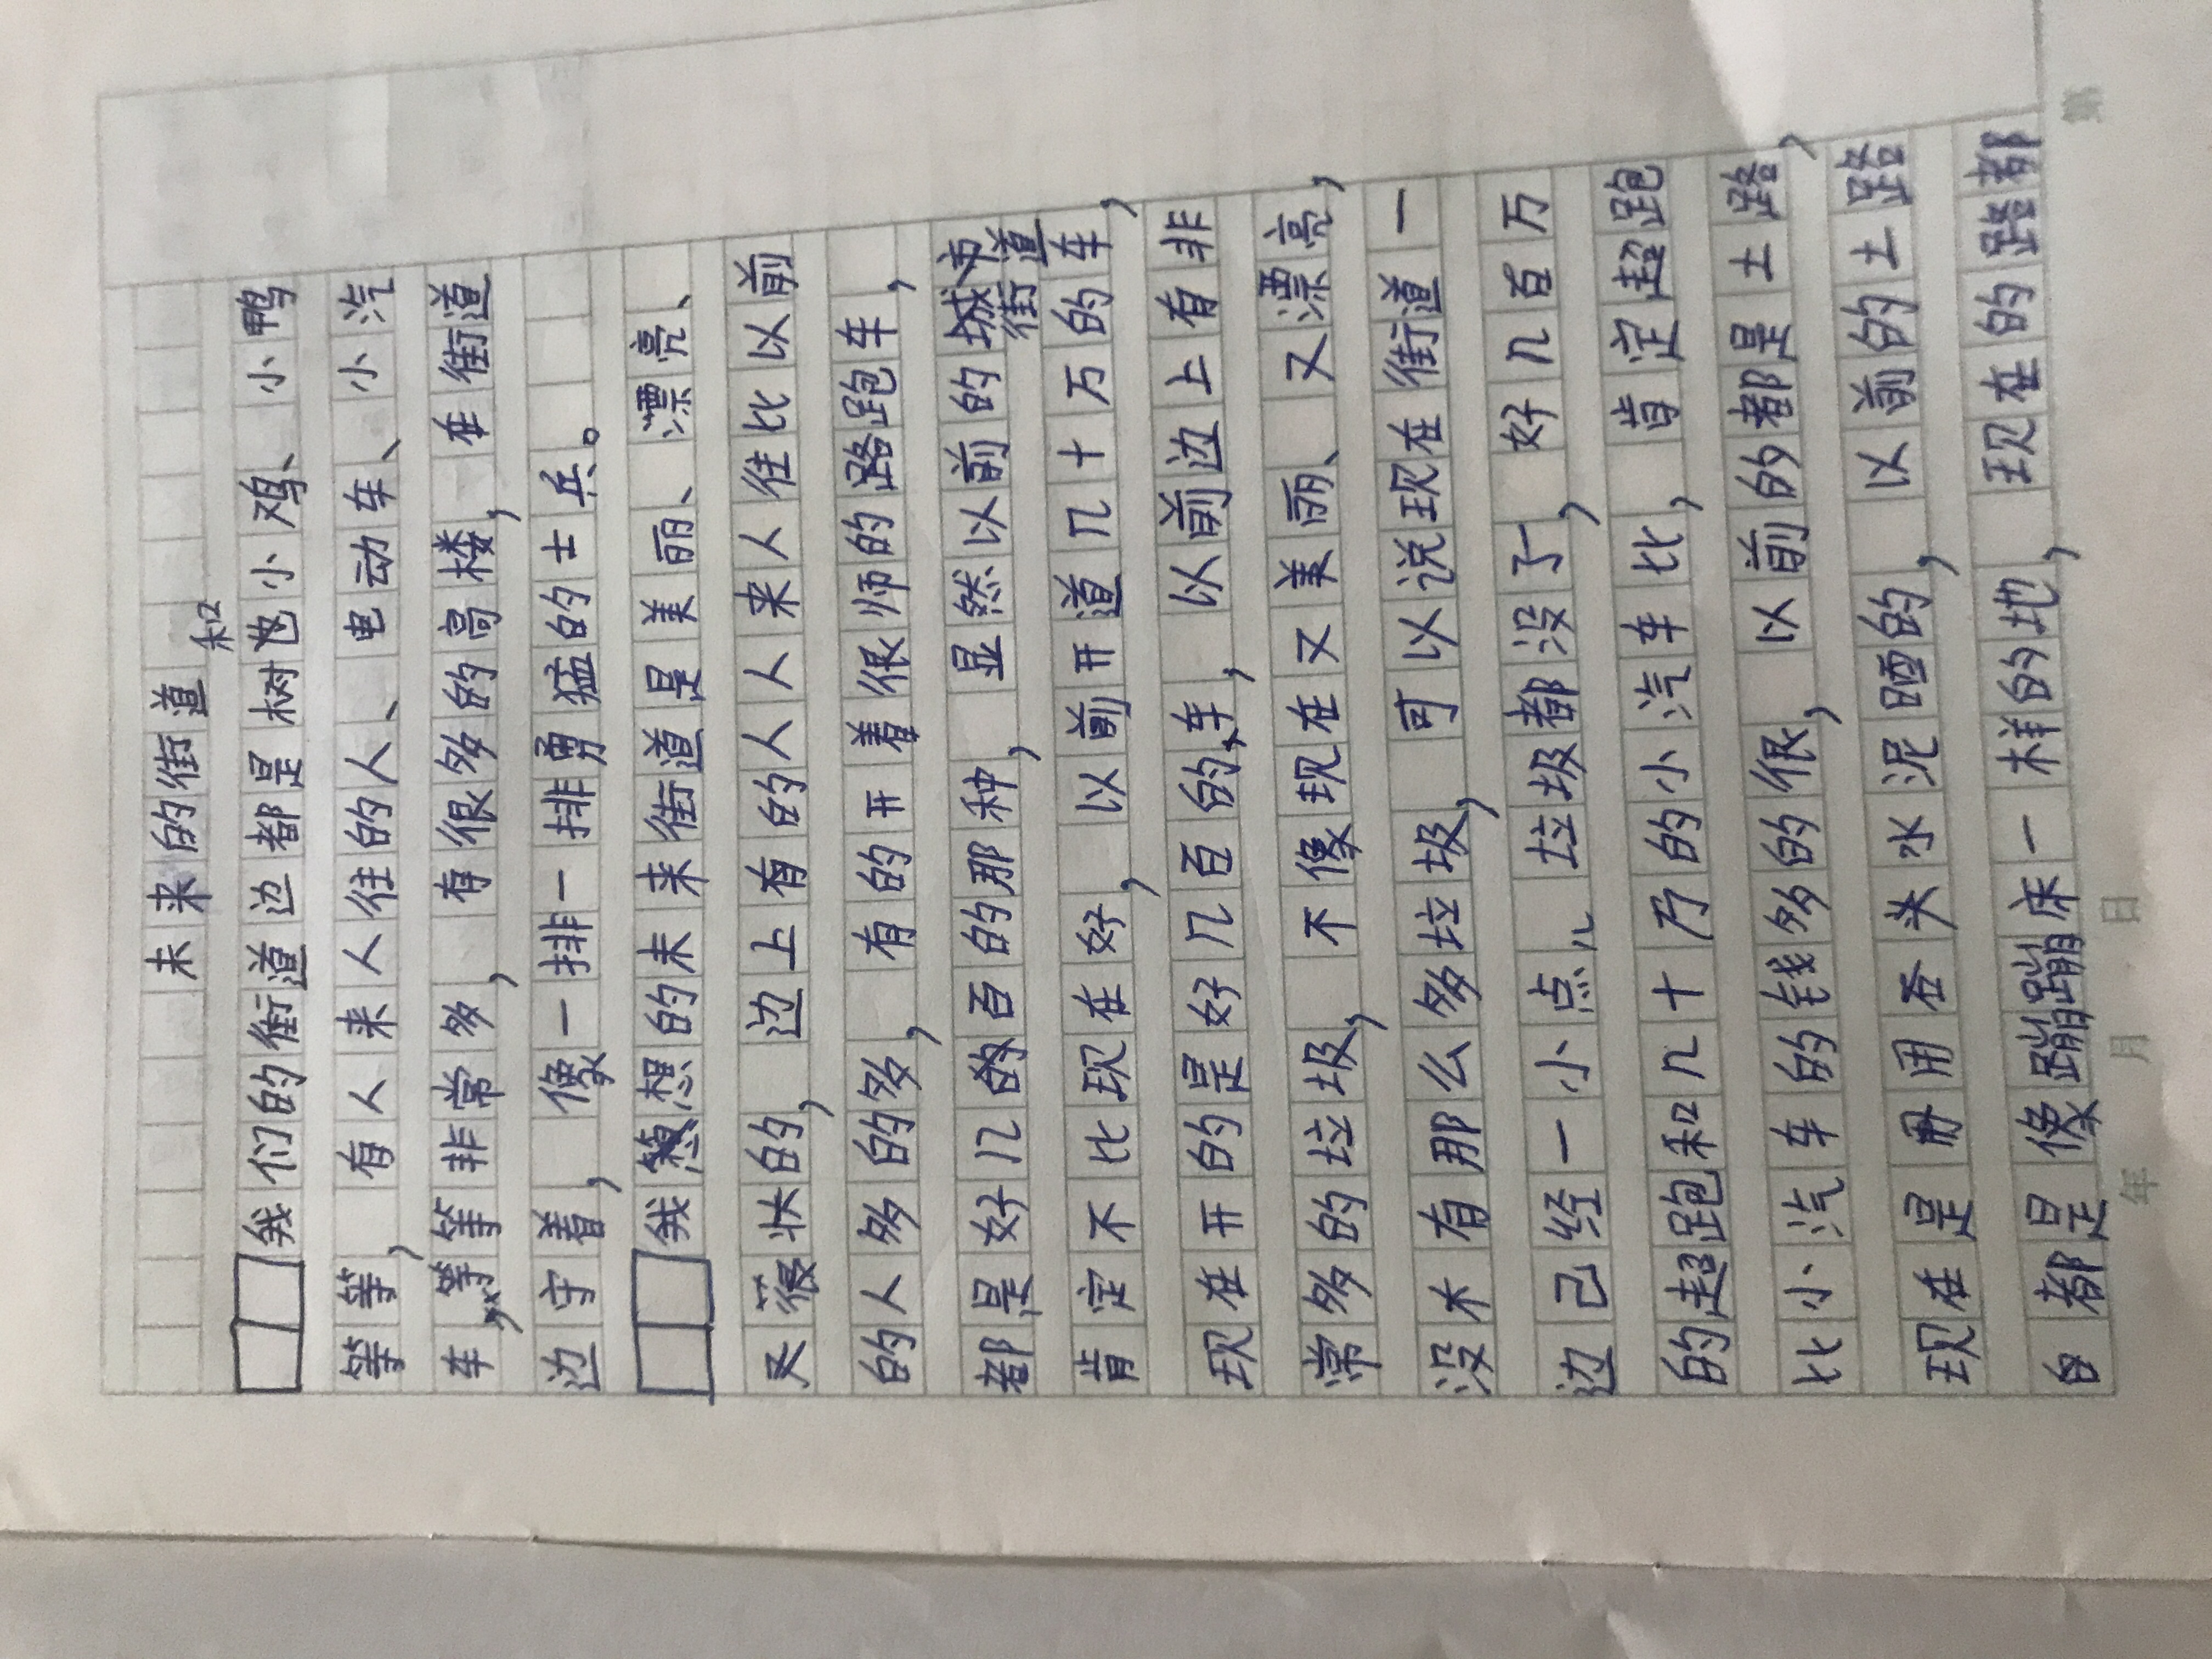 未来的街道
我们的街道边都是树和小鸡、小鸭
等等，有人来人往的人、电动车、小汽
车，等等非常多，有很多的高楼，在街道
边守着，像一排一排勇猛的士兵。
我想的未来街道是美丽、漂亮、
又很快的，边上有的人人来人往比以前
的人多的多，有的开着很师的路跑车，
都是好几百的那种，显然以前的街道
肯定不比现在好，以前开道几十万的车，
现在开的是好几百的车，以前边上有非
常多的垃圾，不像现在又美丽、又漂亮，
没有那么多垃圾，可以说现在街道一
边己经一小点儿垃圾都没了，好几百万
的超跑和几十万的小汽车比，肯定超跑
比小汽车的钱多的很，以前的都是土路，
现在是用石头水泥的，以前的土路
都是像蹦蹦床一样的地，现在的路都
年 月 日
第